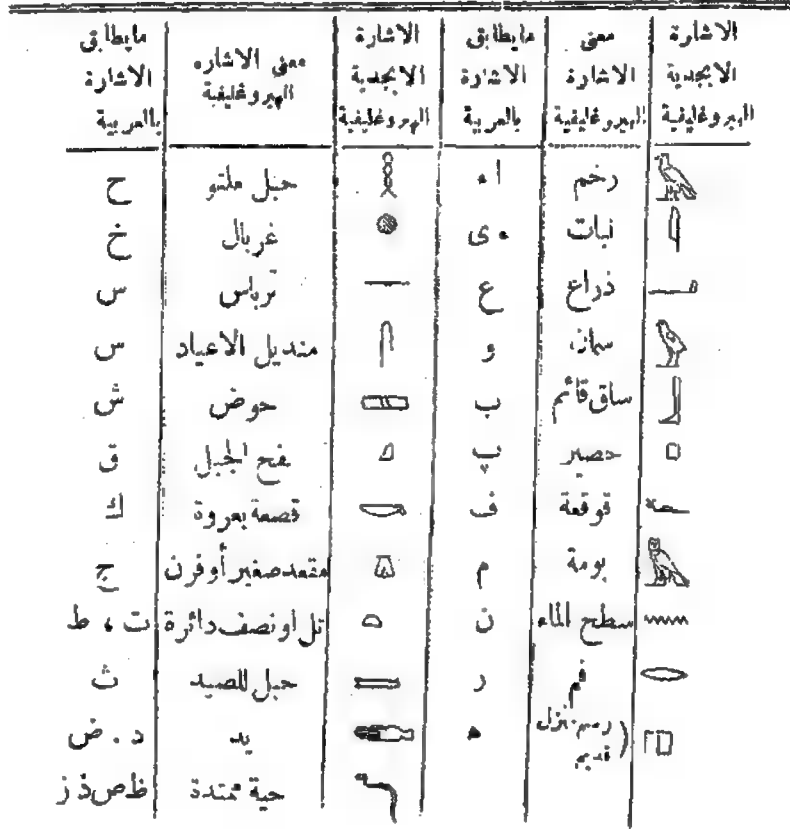 الاشارة الابجدية الهيروغليفية | معنى الاشارة الهيروغليفية | مايطابق الاشارة بالعربية | الاشارة الابجدية الهيروغليفية | معنى الاشاره الهيروغليفية | مايطابق الاشارة بالعربية
رخم | اء | حبل ملتو | ح
نبات | ء ى | غربال | خ
ذراع | ع | ترباس | س
سمان | و | منديل الاعياد | س
ساق قائم | ب | حوض | ش
حصير | پ | سفح الجبل | ق
قوقعة | ف | قصعة بعروة | ك
بومة | م | مقعد صغير أو فرن | ج
سطح الماء | ن | تل او نصف دائرة | ت ، ط
فم | ر | حبل للصيد | ث
رسم منزل قديم | ه | يد | د . ض
حية ممتدة | ظ ص ذ ز